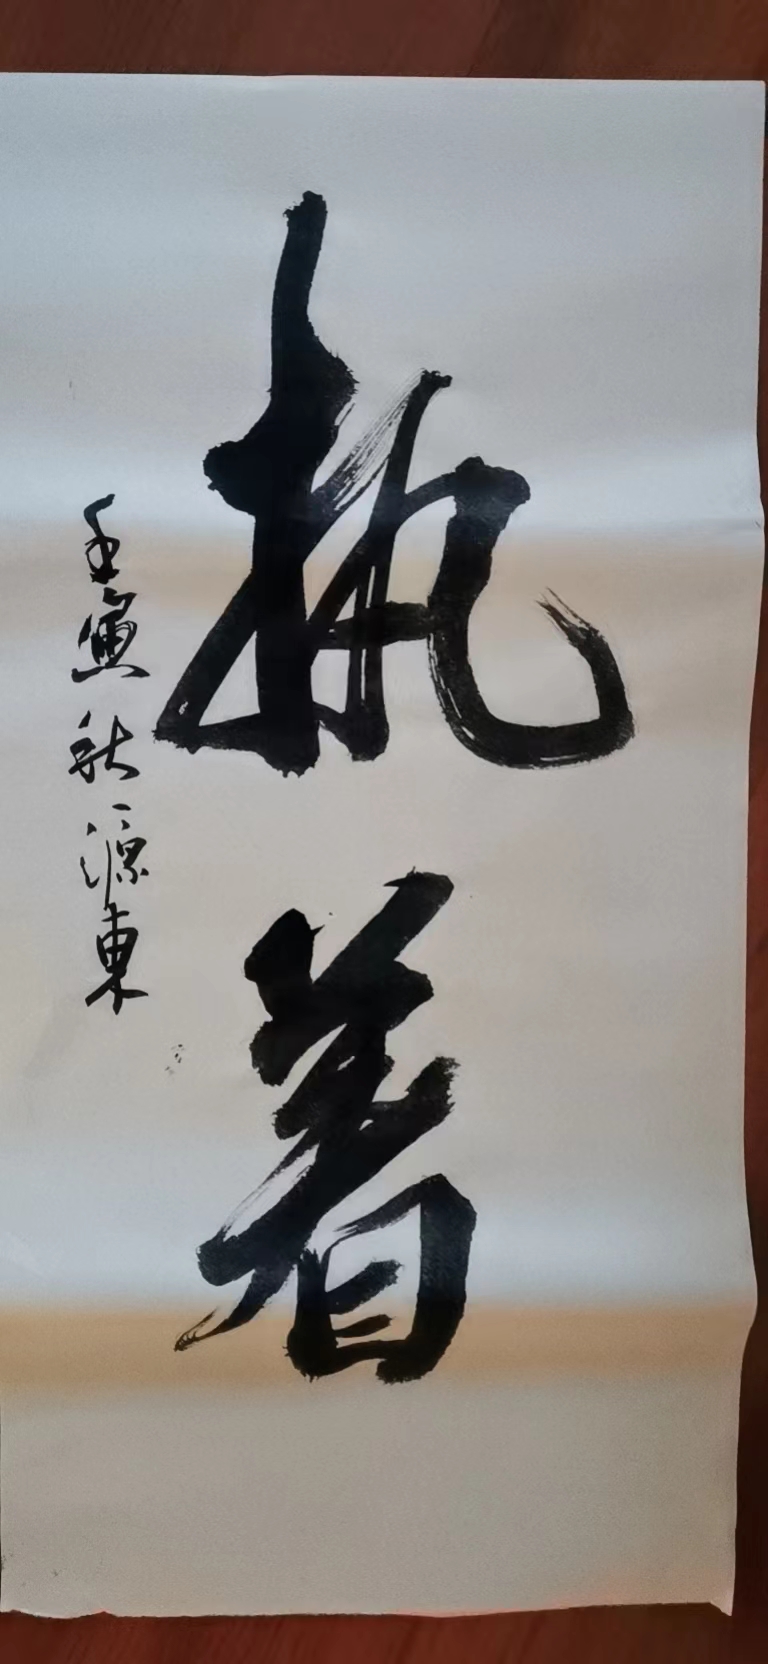 执着
壬寅秋源東